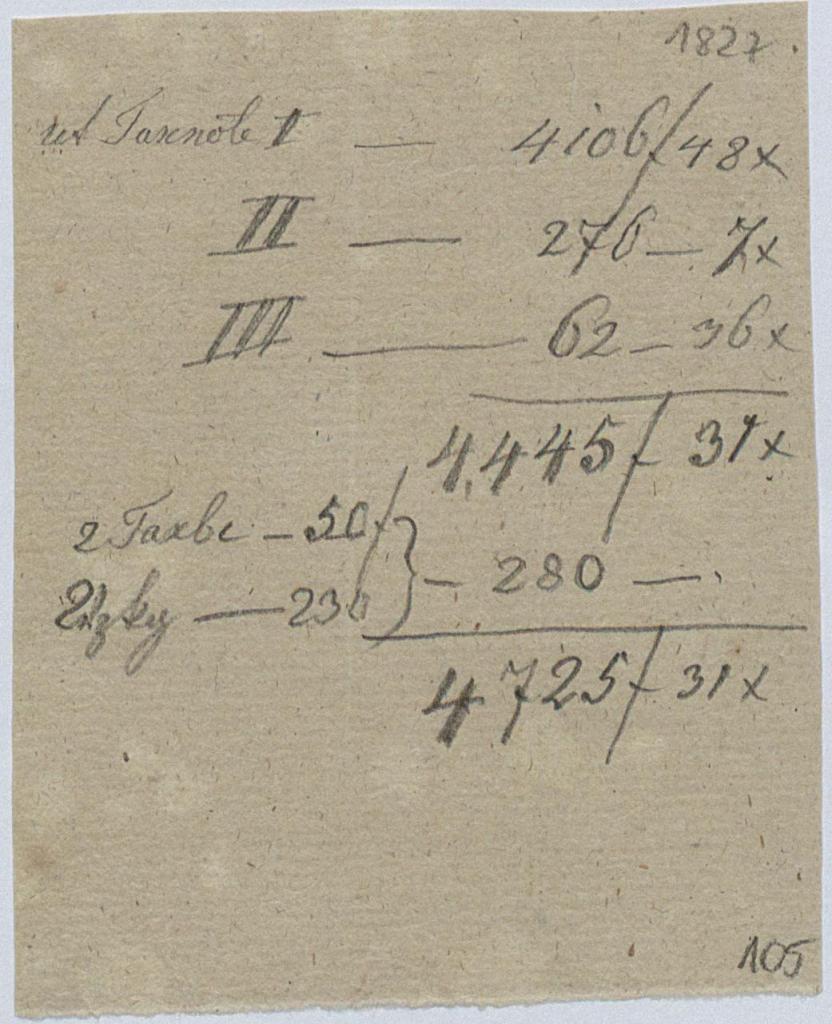 1827.
ut Taxnote I — 4106f 48x
II — 276 — 7x
III — 62 — 36x
4,445f 31x
2 Taxbe — 50f
} — 280 — .
— 230
4725f 31x
105